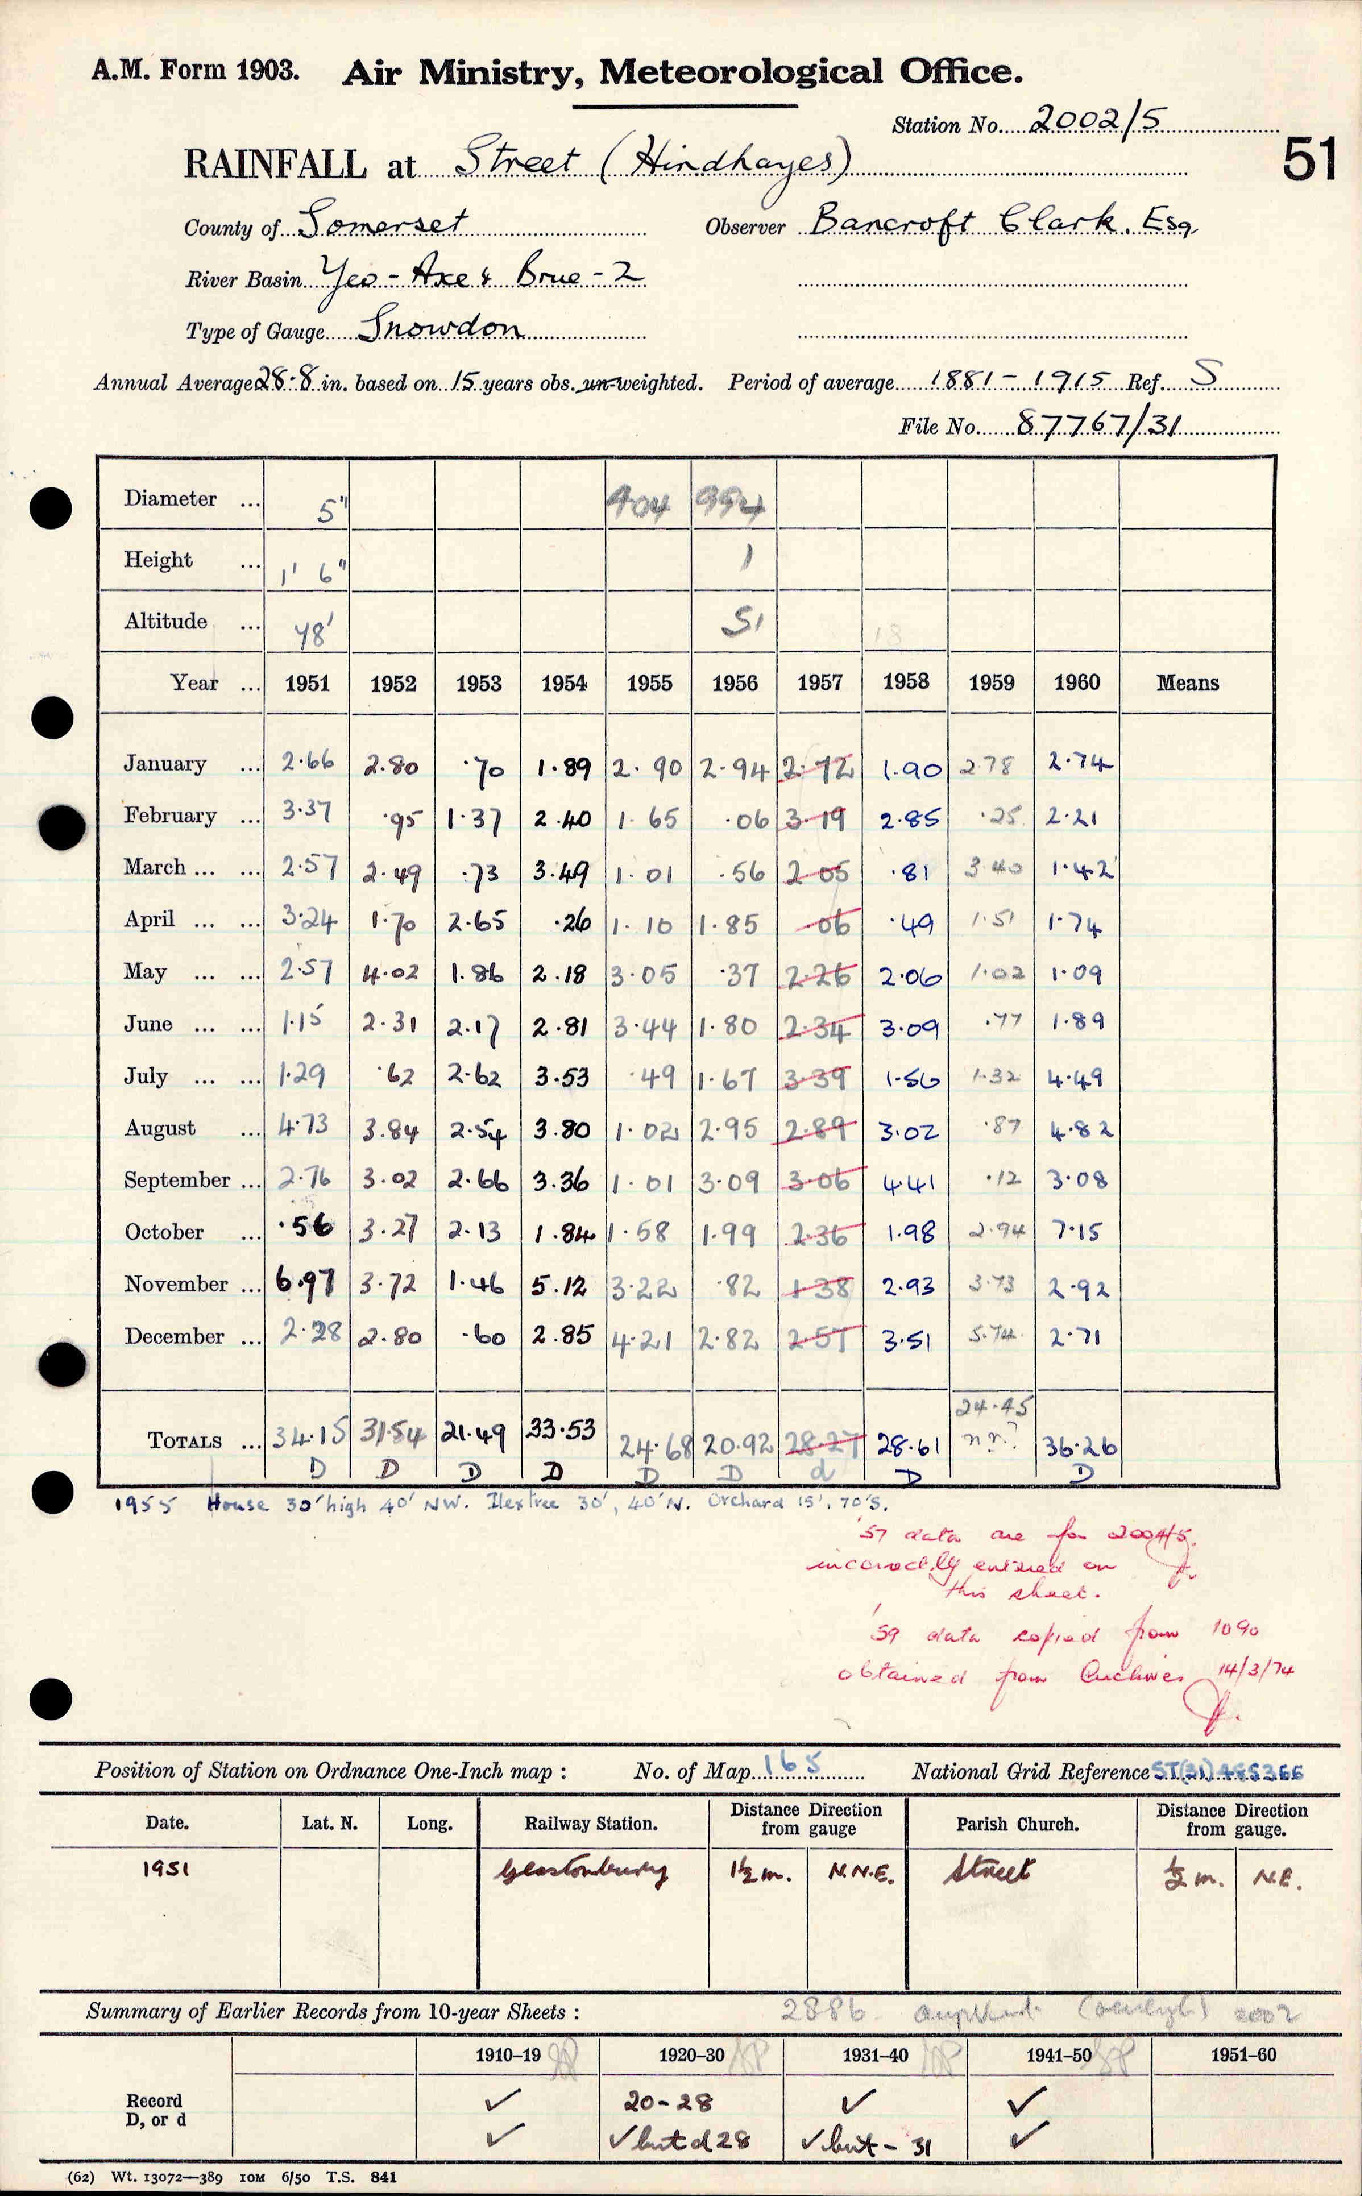 A.M. Form 1903. Air Ministry, Meteorological Office.
Station No. 2002/5
51
RAINFALL at Street (Hindhayes)
County of Somerset Observer Bancroft Clark. Esq.
River Basin Yeo - Axe & Brue - 2
Type of Gauge Snowdon
Annual Average 28.8 in. based on 15 years obs. un-weighted. Period of average 1881 - 1915 Ref. S
File No. 87767/31
Diameter ... 5" 904 994
Height ... 1' 6" 1
Altitude ... 48' 51 18
Year ... 1951 1952 1953 1954 1955 1956 1957 1958 1959 1960 Means
January ... 2.66 2.80 .70 1.89 2.90 2.94 2.72 1.90 2.78 2.74
February ... 3.37 .95 1.37 2.40 1.65 .06 3.19 2.85 .25 2.21
March ... ... 2.57 2.49 .73 3.49 1.01 .56 2.05 .81 3.40 1.42
April ... ... 3.24 1.70 2.65 .26 1.10 1.85 .06 .49 1.51 1.74
May ... ... 2.57 4.02 1.86 2.18 3.05 .37 2.26 2.06 1.02 1.09
June ... ... 1.15 2.31 2.17 2.81 3.44 1.80 2.34 3.09 .77 1.89
July ... ... 1.29 .62 2.62 3.53 .49 1.67 3.39 1.56 1.32 4.49
August ... 4.73 3.84 2.54 3.80 1.02 2.95 2.89 3.02 .87 4.82
September ... 2.76 3.02 2.66 3.36 1.01 3.09 3.06 4.41 .12 3.08
October ... .56 3.27 2.13 1.84 1.58 1.99 2.36 1.98 2.94 7.15
November ... 6.97 3.72 1.46 5.12 3.22 .82 1.38 2.93 3.73 2.92
December ... 2.28 2.80 .60 2.85 4.21 2.82 2.57 3.51 5.74 2.71
24.45
TOTALS ... 34.15 31.54 21.49 33.53 24.68 20.92 28.27 28.61 n.r.? 36.26
D D D D D D d D D
1955 House 30' high 40' NW. Ilex tree 30', 40' N. Orchard 15', 70' S.
'57 data are for 2004/5.
incorrectly entered on
this sheet.
'59 data copied from 1090
obtained from Archives 14/3/74
Position of Station on Ordnance One-Inch map : No. of Map 165 National Grid Reference ST(31)485366
Date. Lat. N. Long. Railway Station. Distance Direction from gauge Parish Church. Distance Direction from gauge.
1951 Glastonbury 1½ m. N.N.E. Street ½ m. N.E.
Summary of Earlier Records from 10-year Sheets : 2886 2002
1910–19 1920–30 1931–40 1941–50 1951–60
Record ✓ 20-28 ✓ ✓
D, or d ✓ ✓ but d 28 ✓ but - 31 ✓
(62) Wt. 13072—389 10M 6/50 T.S. 841